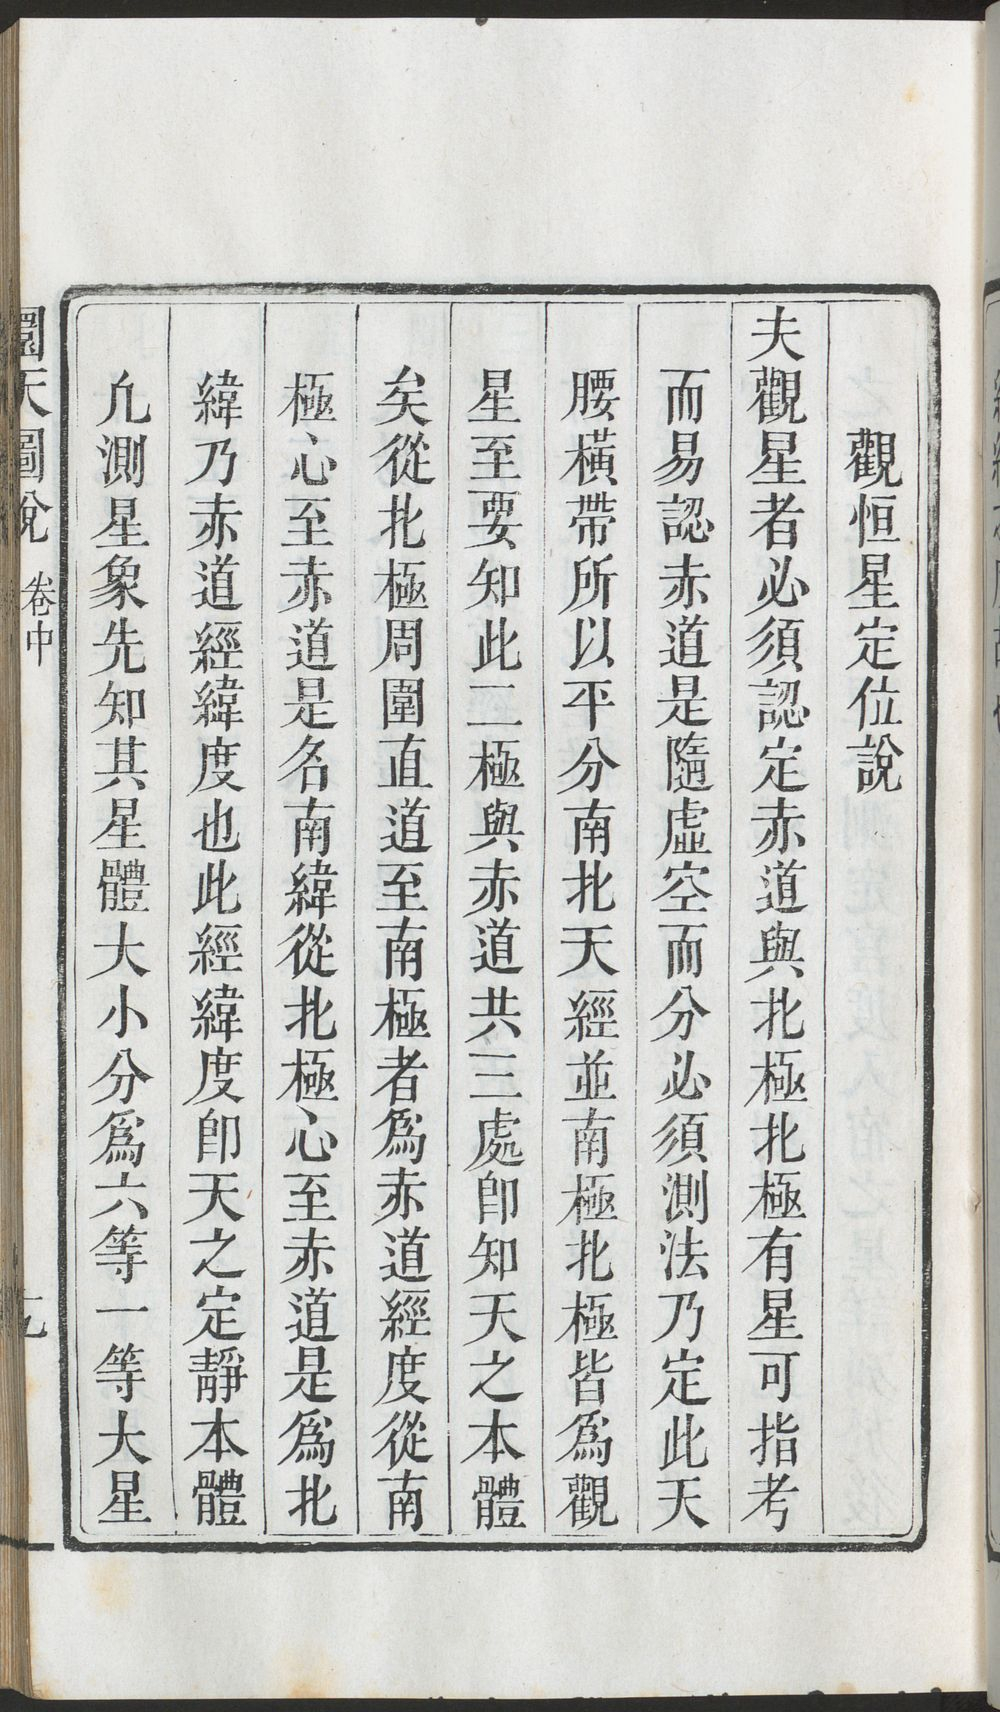 觀恒星定位說
夫觀星者必須認定赤道與北極北極有星可指考
而易認赤道是隨虛空而分必須測法乃定此天
腰橫帶所以平分南北天經並南極北極皆爲觀
星至要知此二極與赤道共三處卽知天之本體
矣從北極周圍直道至南極者爲赤道經度從南
極心至赤道是名南緯從北極心至赤道是爲北
緯乃赤道經緯度也此經緯度卽天之定靜本體
凢測星象先知其星體大小分爲六等一等大星
圜天圖說 卷中